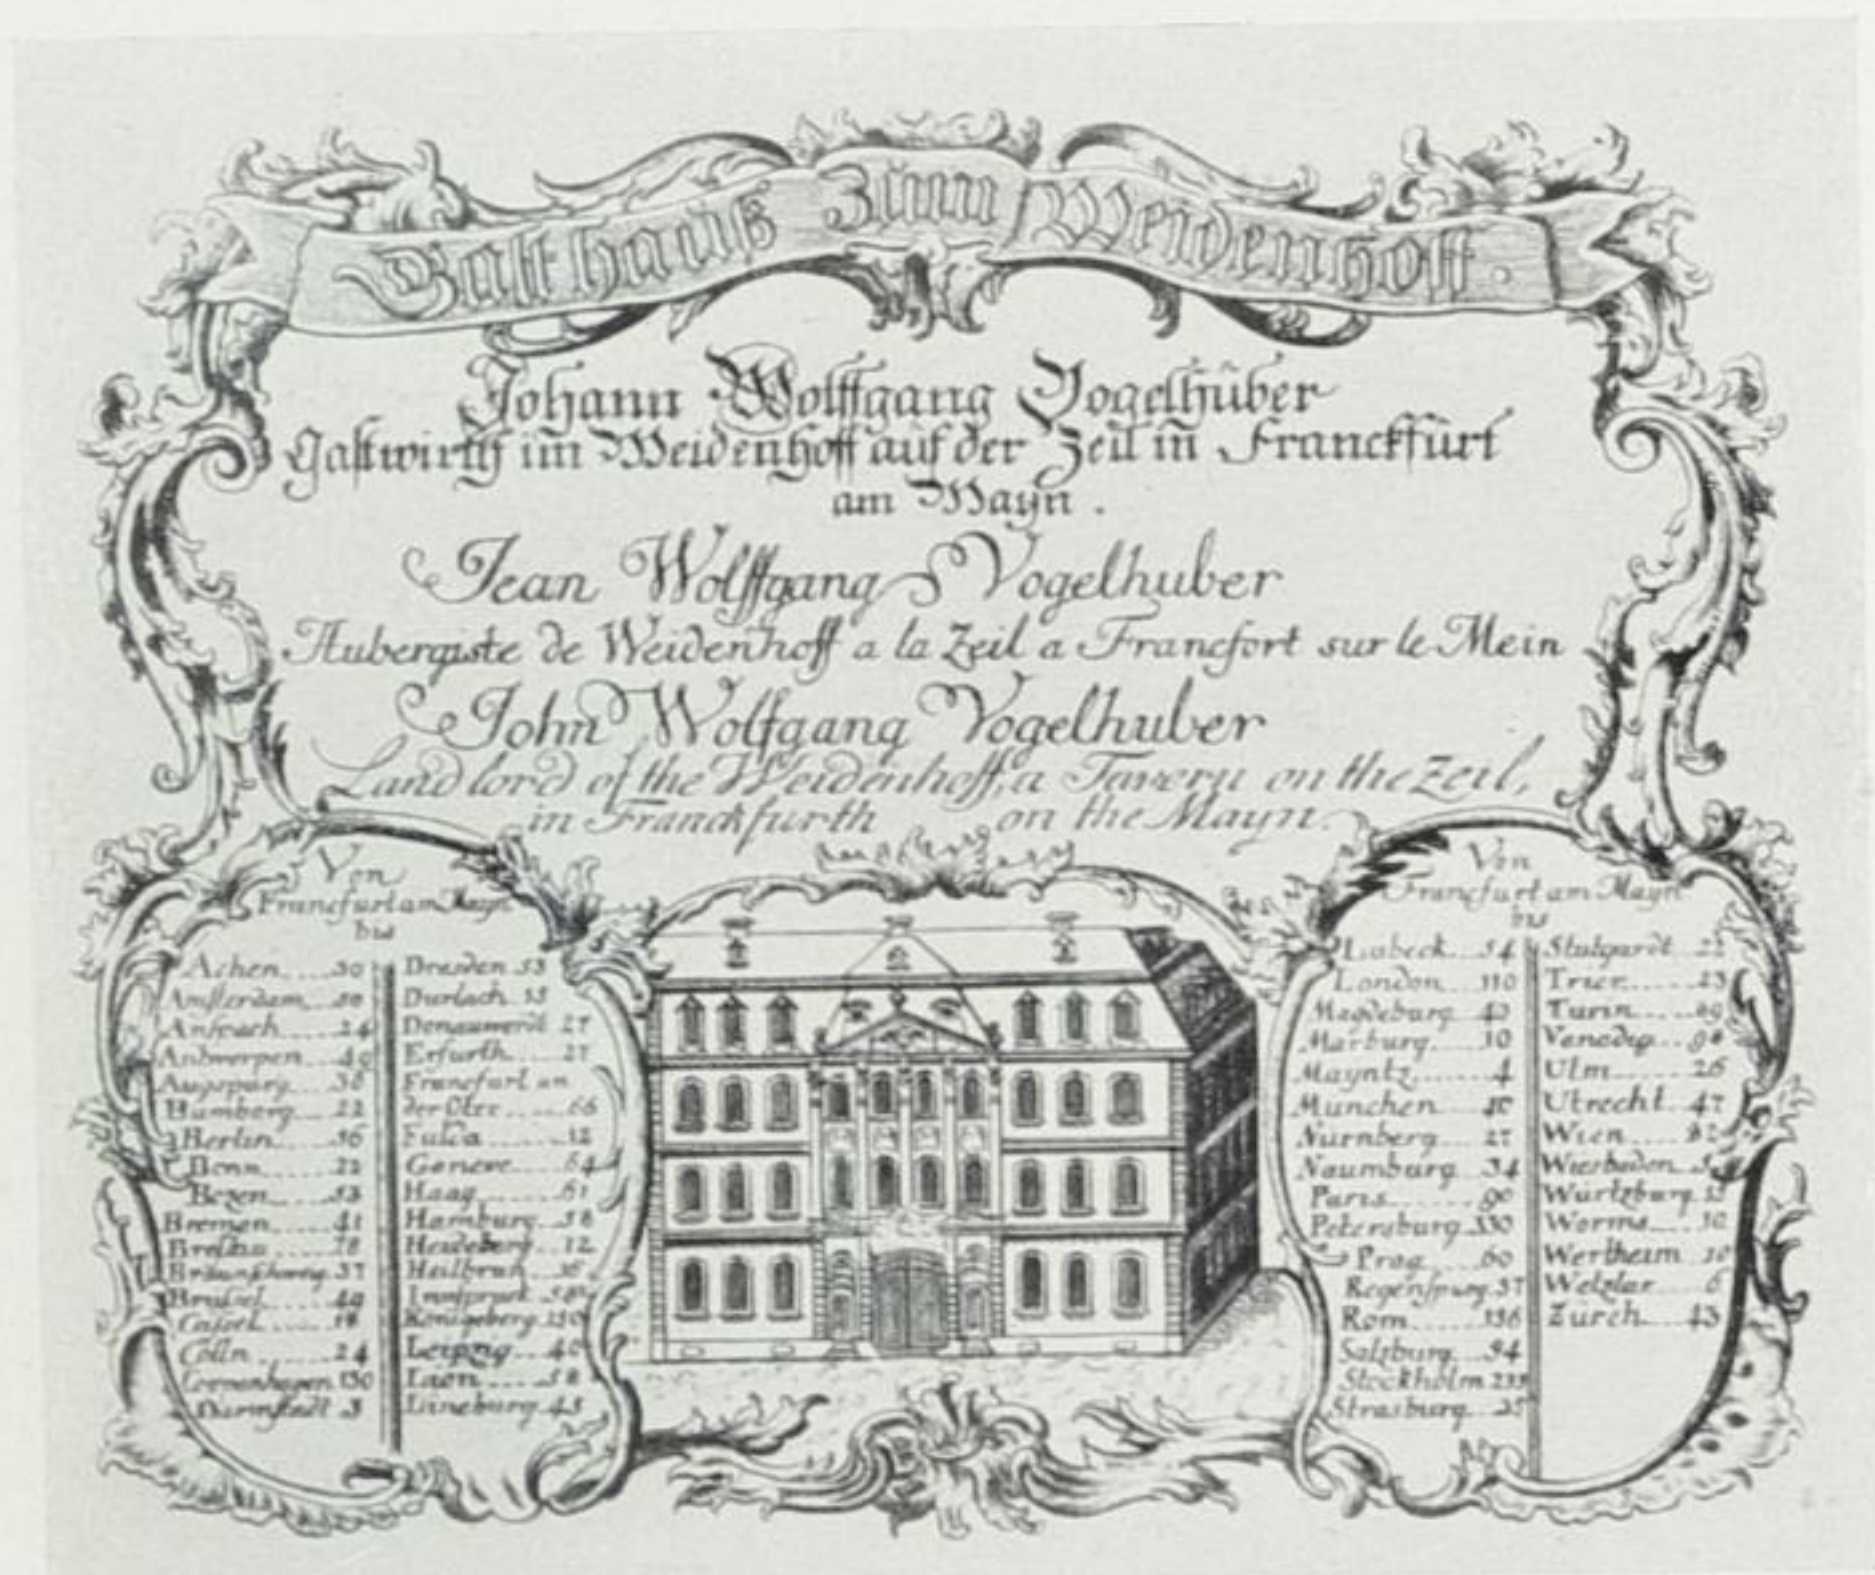 Gasthauß Zum Weidenhoff.
Johann Wolffgang Vogelhuber
Gastwirth im Weidenhoff auf der Zeil in Franckfurt
am Mayn.
Jean Wolffgang Vogelhuber
Aubergiste de Weidenhoff a la Zeil a Francfort sur le Mein
John Wolfgang Vogelhuber
Landlord of the Weidenhoff, a Tavern on the Zeil,
in Franckfurth on the Mayn.
Von
Francfurt am Mayn
bis
Achen 30
Amsterdam
Anspach 24
Andwerpen 49
Augspurg
Bamberg 22
Berlin 56
Bonn 22
Bozen 53
Bremen 41
Breslau 78
Braunschweig 37
Brussel 49
Cassel 18
Cölln 24
Coppenhagen 130
Darmstadt 3
Dresden 53
Durlach
Donauwerdt 27
Erfurth 27
Francfurt an
der Oder 66
Fulda 12
Geneve 64
Haag 61
Hamburg 58
Heidelberg 12
Heilbrun
Innspruck
Königsberg 150
Leipzig 40
Laon 58
Lüneburg 45
Von
Francfurt am Mayn
bis
Lubeck 54
London 110
Magdeburg
Marburg 10
Mayntz 4
Munchen
Nurnberg 27
Naumburg 34
Paris 90
Petersburg 330
Prag 60
Regenspurg 37
Rom 156
Salzburg 54
Stockholm
Strasburg 25
Stutgardt
Trier 23
Turin
Venedig
Ulm 26
Utrecht 47
Wien
Wiesbaden
Würtzburg
Worms 10
Wertheim 10
Wetzlar 6
Zürch 43